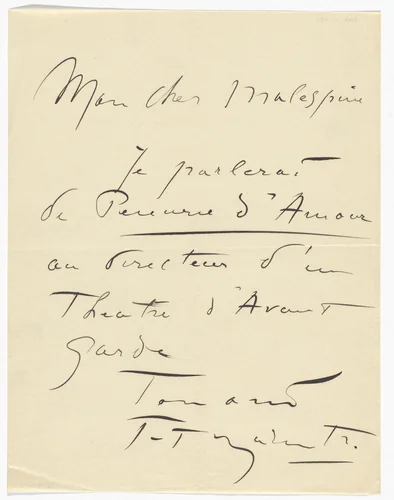 Mon cher Malespine
Je parlerai
de Penurie d'Amour
au directeur d'un
Theatre d'Avant
Garde
Ton ami
F.T. Marinetti